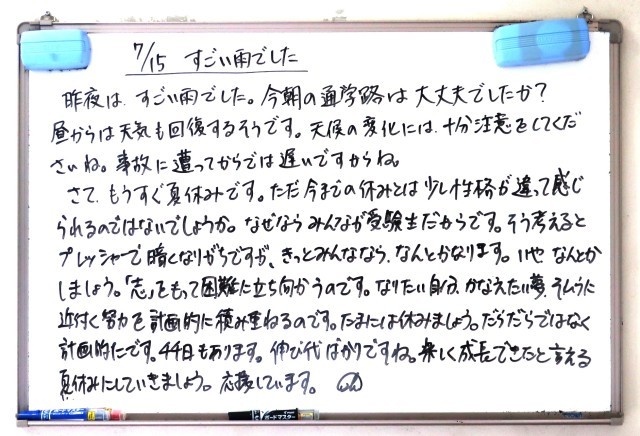 7/15 すごい雨でした
昨夜は、すごい雨でした。今朝の通学路は大丈夫でしたか?
昼からは天気も回復するそうです。天候の変化には、十分注意をしてくだ
さいね。事故に遭ってからでは遅いですからね。
さて、もうすぐ夏休みです。ただ今までの休みとは少し性格が違って感じ
られるのではないでしょうか。なぜならみんなが受験生だからです。そう考えると
プレッシャーで暗くなりがちですが、きっとみんななら、なんとかなります。いや なんとか
しましょう。「志」をもって困難に立ち向かうのです。なりたい自分、かなえたい夢、そんなうに
近付く努力を計画的に積み重ねるのです。たまには休みましょう。だらだらではなく
計画的にです。44日もあります。伸び代ばかりですね。楽しく成長できたと言える
夏休みにしていきましょう。応援しています。
ボードマスター